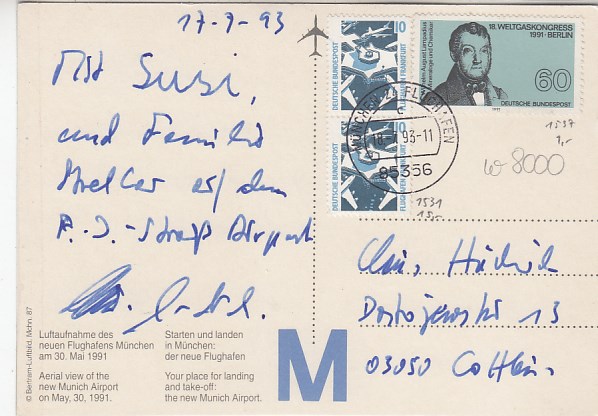 17-7-93
Mit Susi,
und Familie
auf dem
F.J.-Strauß Airport
Luftaufnahme des
neuen Flughafens München
am 30. Mai 1991
Aerial view of the
new Munich Airport
on May, 30. 1991.
Starten und landen
in München:
der neue Flughafen
Your place for landing
and take-off:
the new Munich Airport.
© Bertram-Luftbild, Mchn. 87
M
10
DEUTSCHE BUNDESPOST
FLUGHAFEN FRANKFURT
10
DEUTSCHE BUNDESPOST
FLUGHAFEN
18. WELTGASKONGRESS
1991 · BERLIN
Wilhelm August Lampadius
60
DEUTSCHE BUNDESPOST
MÜNCHEN 24 FLUGHAFEN
c
93-11
85356
1537
1,-
w 8000
1531
Dostojewskistr 13
03050 Cottbus